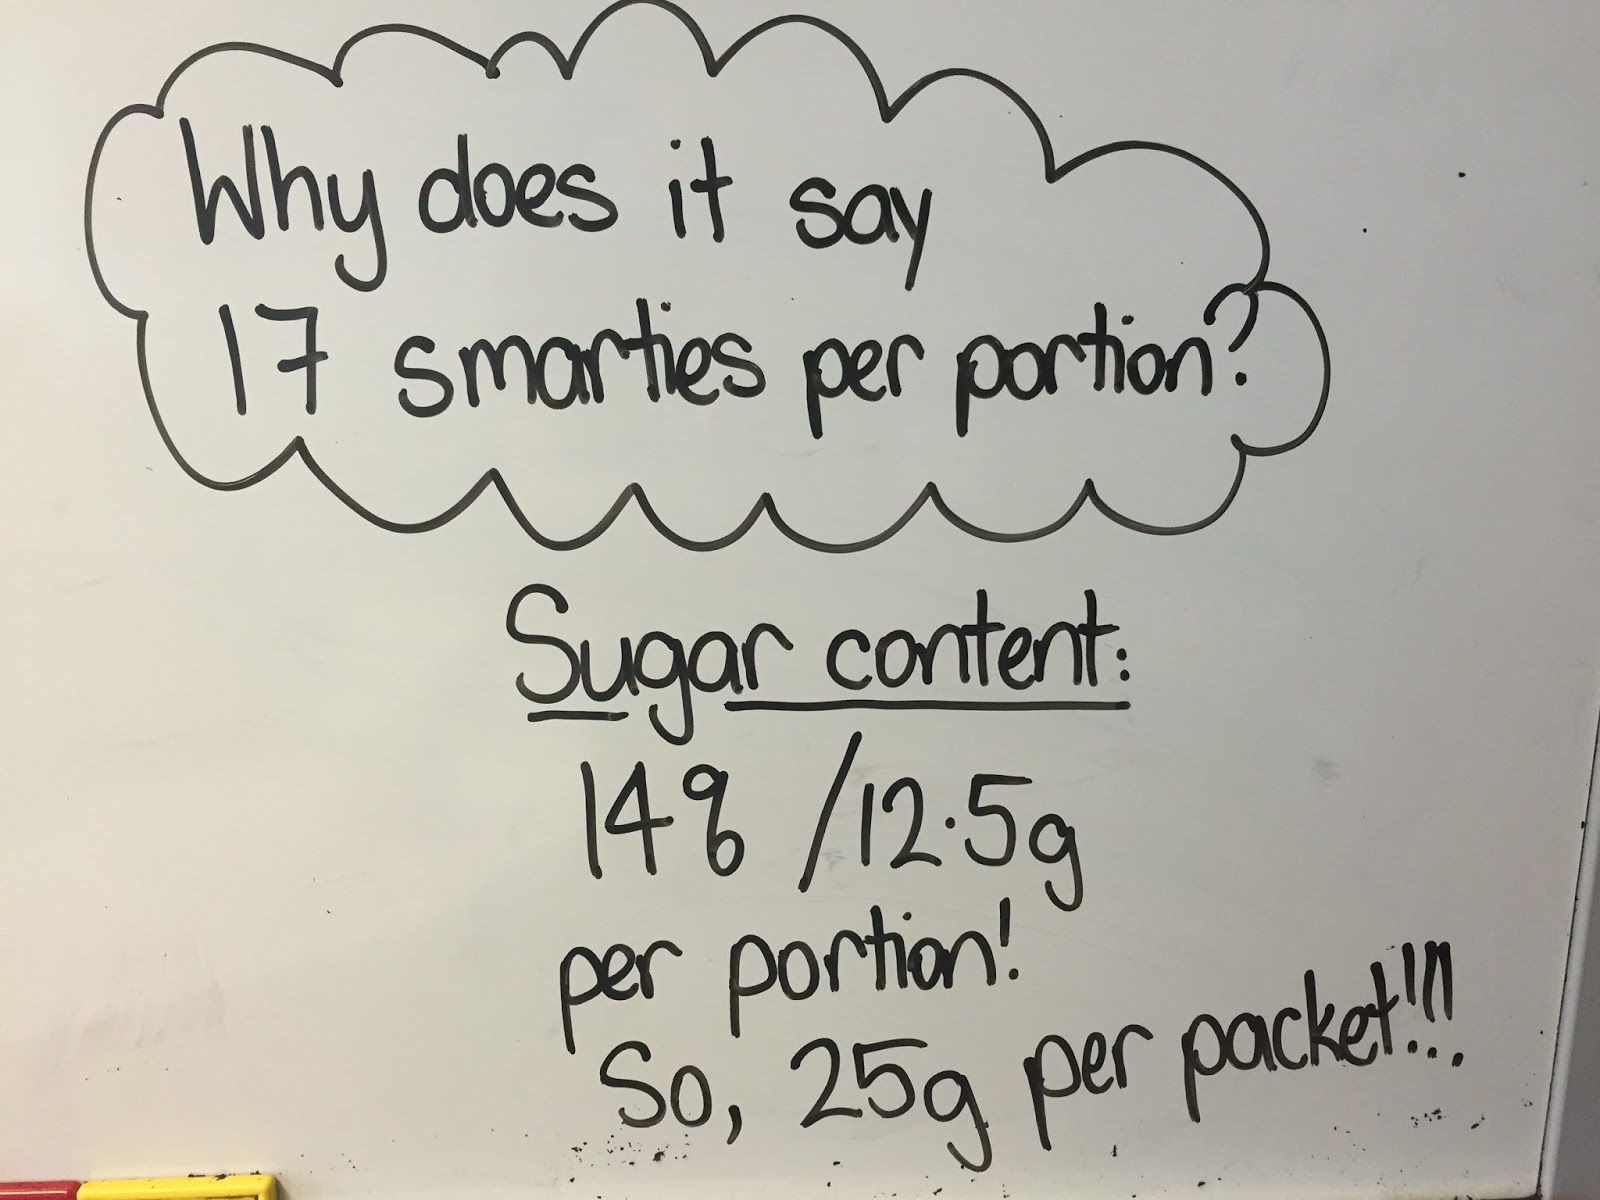 Why does it say
17 smarties per portion?
Sugar content:
14% /12.5g
per portion!
So, 25g per packet!!!